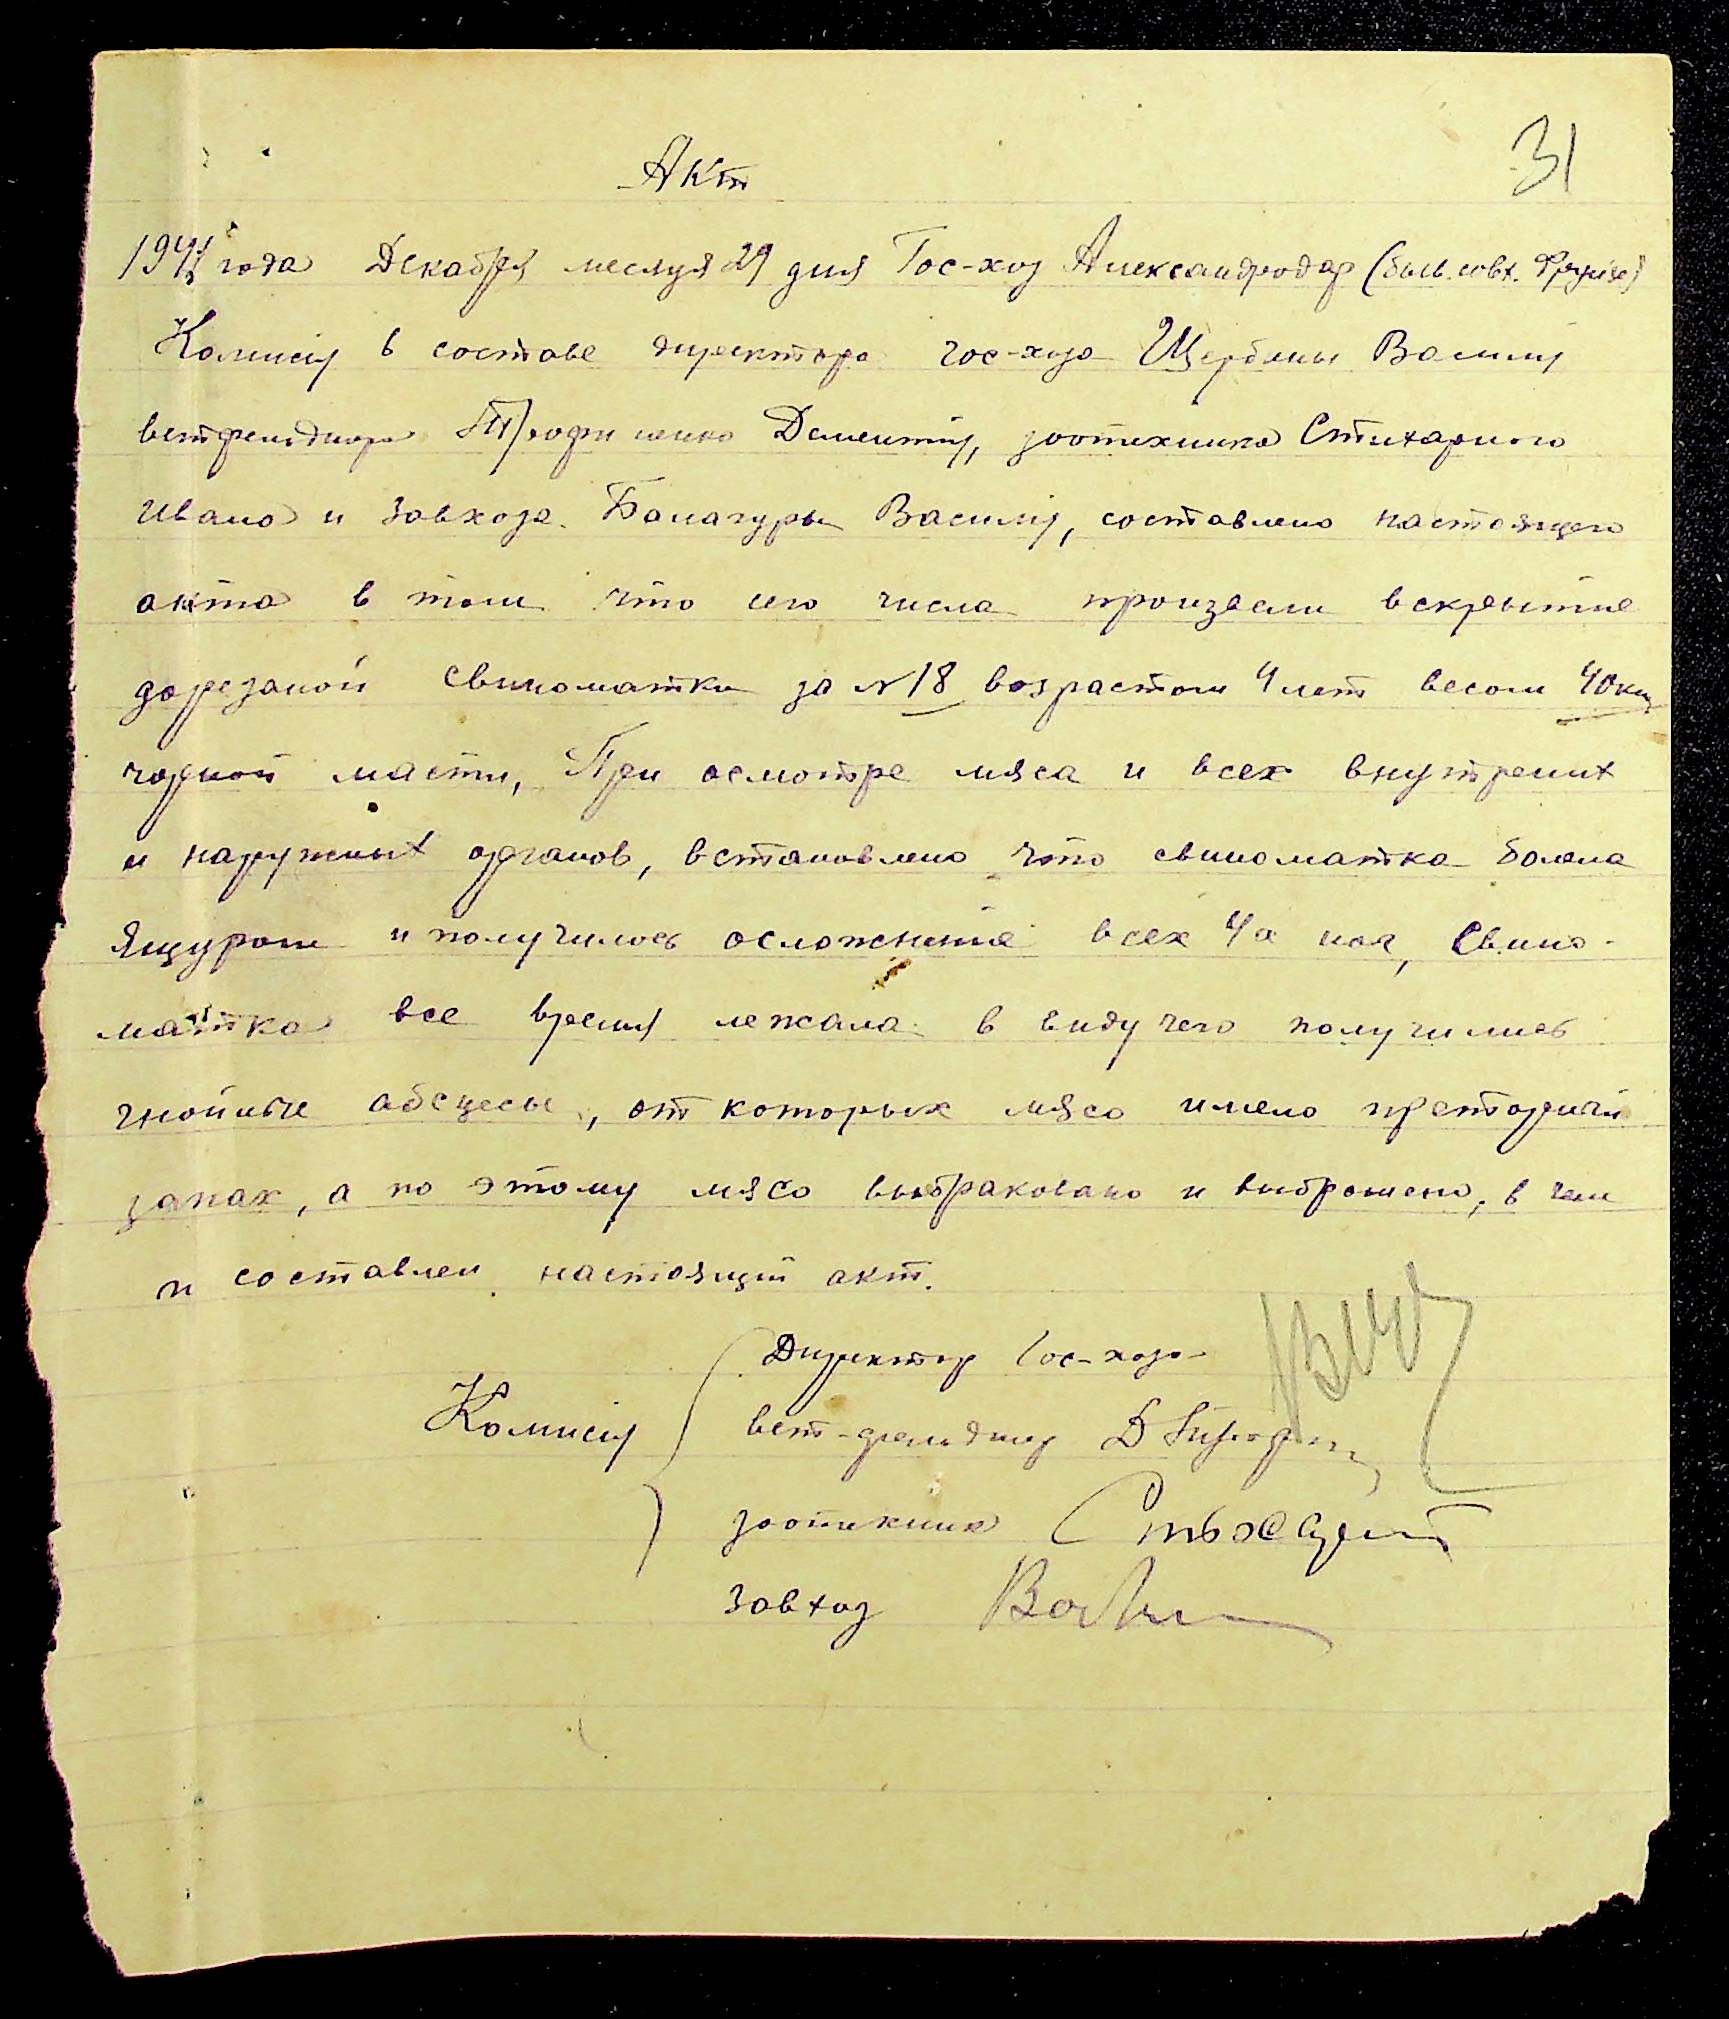 31
Акт
1941 года Декабря месяца 29 дня Гос-хоз Александродар (бывь. совх. Фрунзе)
Комисия в составе директора гос-хоза Щербины Василия
ветфельдшера Трофименко Дементия, зоотехника Стихарного
Ивана и Завхоза Балагуры Василия, составлено настоящего
акта в том что сего числа произвели вскрытие
дорезаной свиноматки за № 18 возрастом 4 лет весом 40 кг
чорной масти, При осмотре мяса и всех внутрених
и наружных органов, встановлено что свиноматка болела
Ящуром и получилось осложнение всех 4х ног, Свино-
матка все время лежала в виду чего получились
гнойные абсцесы, от которых мясо имело преторичй
запах, а по этому мясо выбраковано и выброшено, в чем
и составлен настоящий акт.
Директор Гос-хоза
Комисия вет-фельдшер
зоотехник
Завхоз